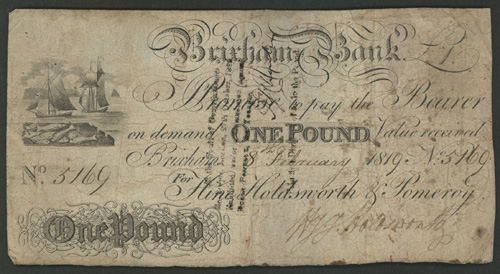 Brixham Bank £1
I Promise to pay the Bearer
on demand ONE POUND Value received
Brixham 8 February 1819 No 5169
No 5169
For Hine Holdsworth & Pomeroy
One Pound